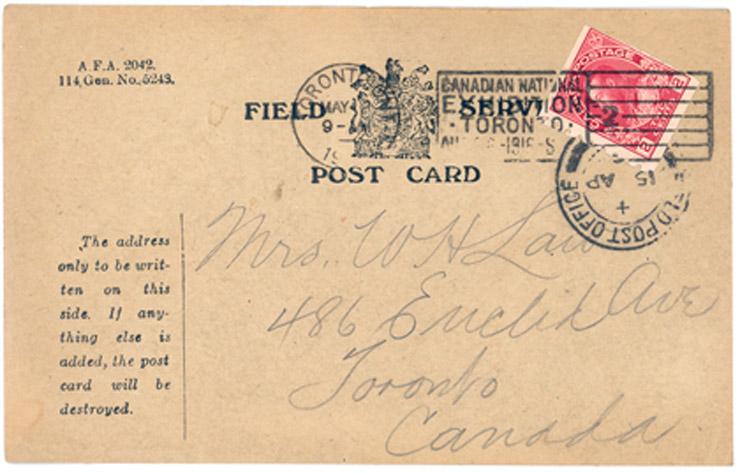 A.F.A. 2042.
114.Gen. No. 5248.
FIELD SERVI
POST CARD
TORONTO
MAY
9-
19
CANADIAN NATIONAL
EXPOSITION
TORONTO
-1916-S
POSTAGE
2
FIELD POST OFFICE
15
AP
The address
only to be writ-
ten on this
side. If any-
thing else is
added, the post
card will be
destroyed.
Mrs. W H Law
486 Euclid Ave
Toronto
Canada